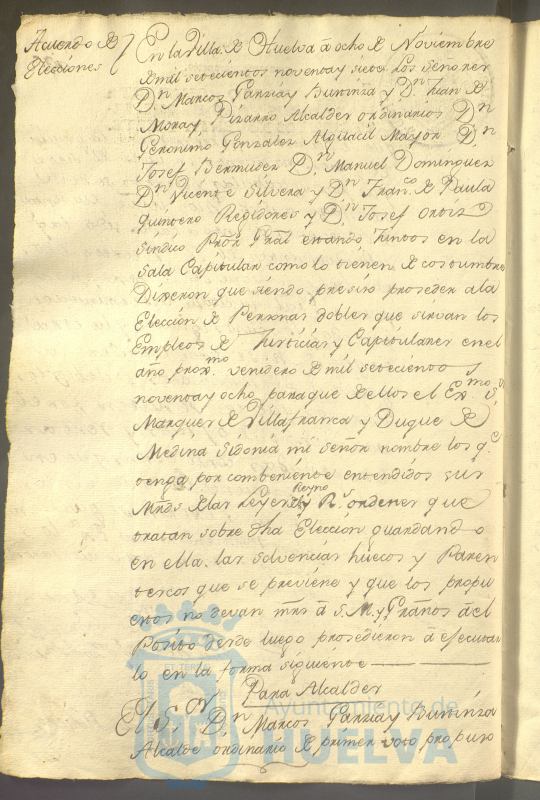 Acuerdo de
Elecciones
En la Villa de Huelva à ocho de Noviembre
de mil setecientos noventa y siete los señores
Dn Marcos Garzia y Buninza y Dn Juan de
Mora y Pizarro Alcaldes ordinarios Dn
Geronimo Gonzalez Alguacil Mayor Dn
Josef Bermudez Dn Manuel Dominguez
Dn Vicente Silvera y Dn Franco de Paula
quintero Regidores y Dn Josef Ortiz
sindico Pror Gral estando Juntos en la
Sala Capitular como lo tienen de costumbre
Dixeron que siendo presiso proseder a la
Elección de Personas dobles que sirvan los
Empleos de Justicias y Capitulares en el
año proxmo venidero de mil setecientos
noventa y ocho para que de ellos el Exmo S.
Marques de Villafranca y Duque de
Medina Sidonia mi señor nombre los qe
tenga por combeniente entendidos sus
Mrds de las Leyes Reyno y Rs ordenes que
tratan sobre dha Elección guardando
en ella las solvencias huecos y Paren
tescos que se previene y que los propu
estos no devan mrs à S.M. y Granos àel
Posito desde luego prosedieron à efectuar
lo en la forma siguiente
Para Alcalde
El Sor Dn Marcos Garzia y Buninza
Alcalde ordinario de primer voto propuso
Ayuntamiento de
HUELVA